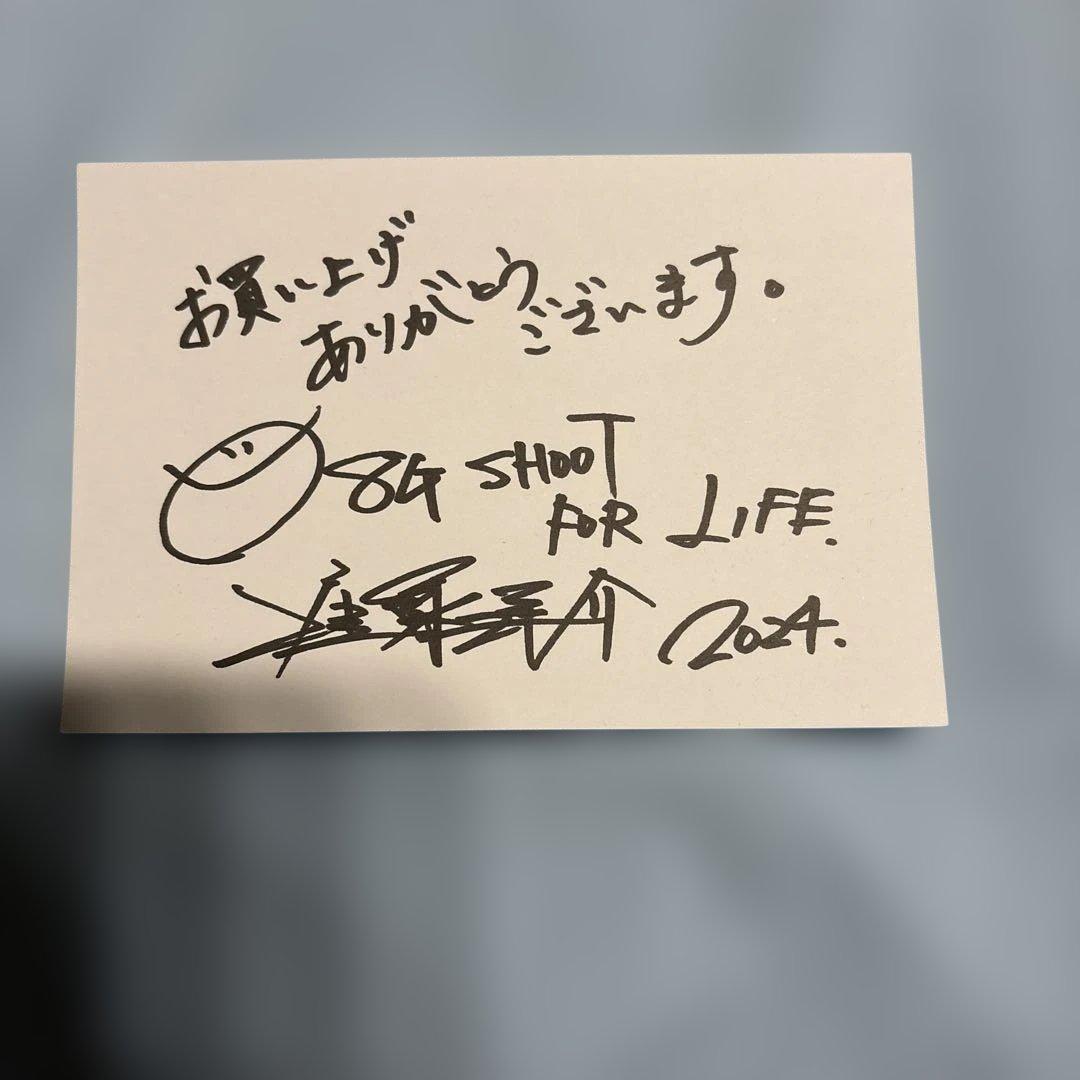 お買い上げ
ありがとう
ございます。
8G SHOOT
FOR LIFE.
介 2024.